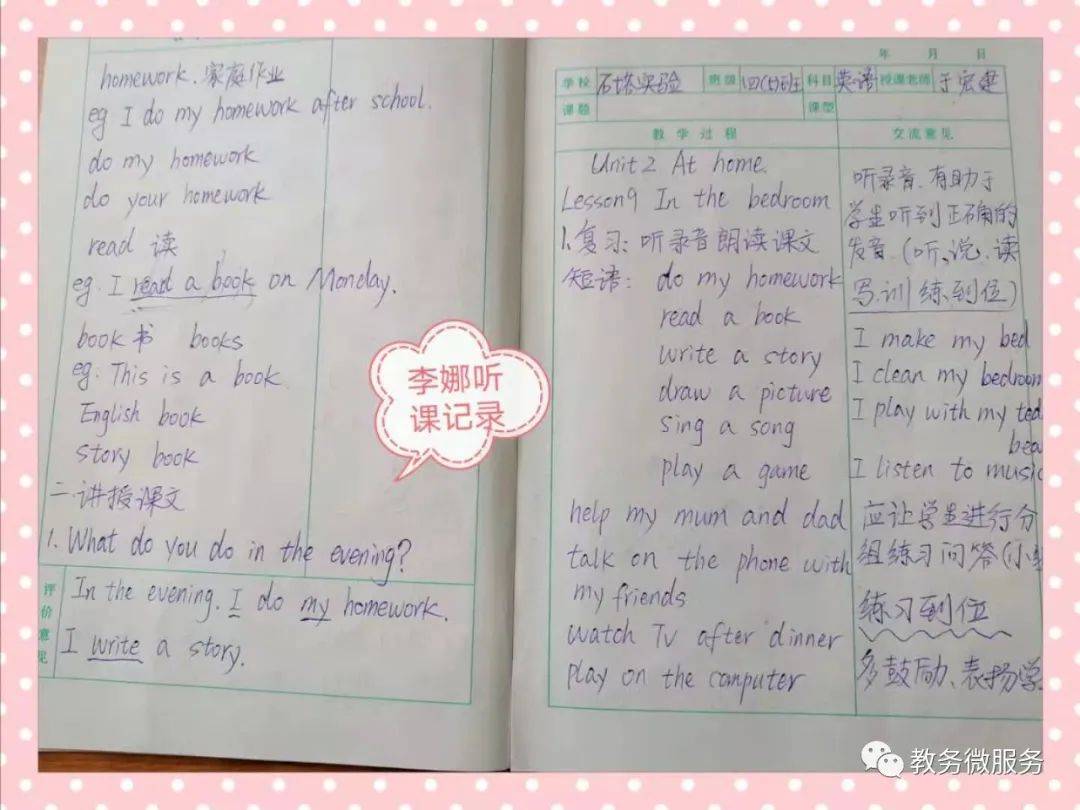 homework. 家庭作业
eg I do my homework after school.
do my homework
do your homework
read 读
eg. I read a book on Monday.
book 书 books
eg. This is a book.
English book
story book
二.讲授课文
1. What do you do in the evening?
评价意见
In the evening. I do my homework.
I write a story.
李娜听
课记录
年 月 日
学校 石塔实验 班级 四(5)班 科目 英语 授课老师 于宏建
课题 课型
教学过程 交流意见
Unit 2 At home.
Lesson 9 In the bedroom
1.复习: 听录音朗读课文
短语: do my homework
read a book
write a story
draw a picture
sing a song
play a game
help my mum and dad
talk on the phone with
my friends
watch Tv after dinner
play on the computer
听录音.有助于
学生听到正确的
发音.(听、说.读
写.训练到位)
I make my bed
I clean my bedroom
I play with my ted
bea
I listen to music
应让学生进行分
组练习问答(小
练习到位
多鼓励、表扬学
教务微服务